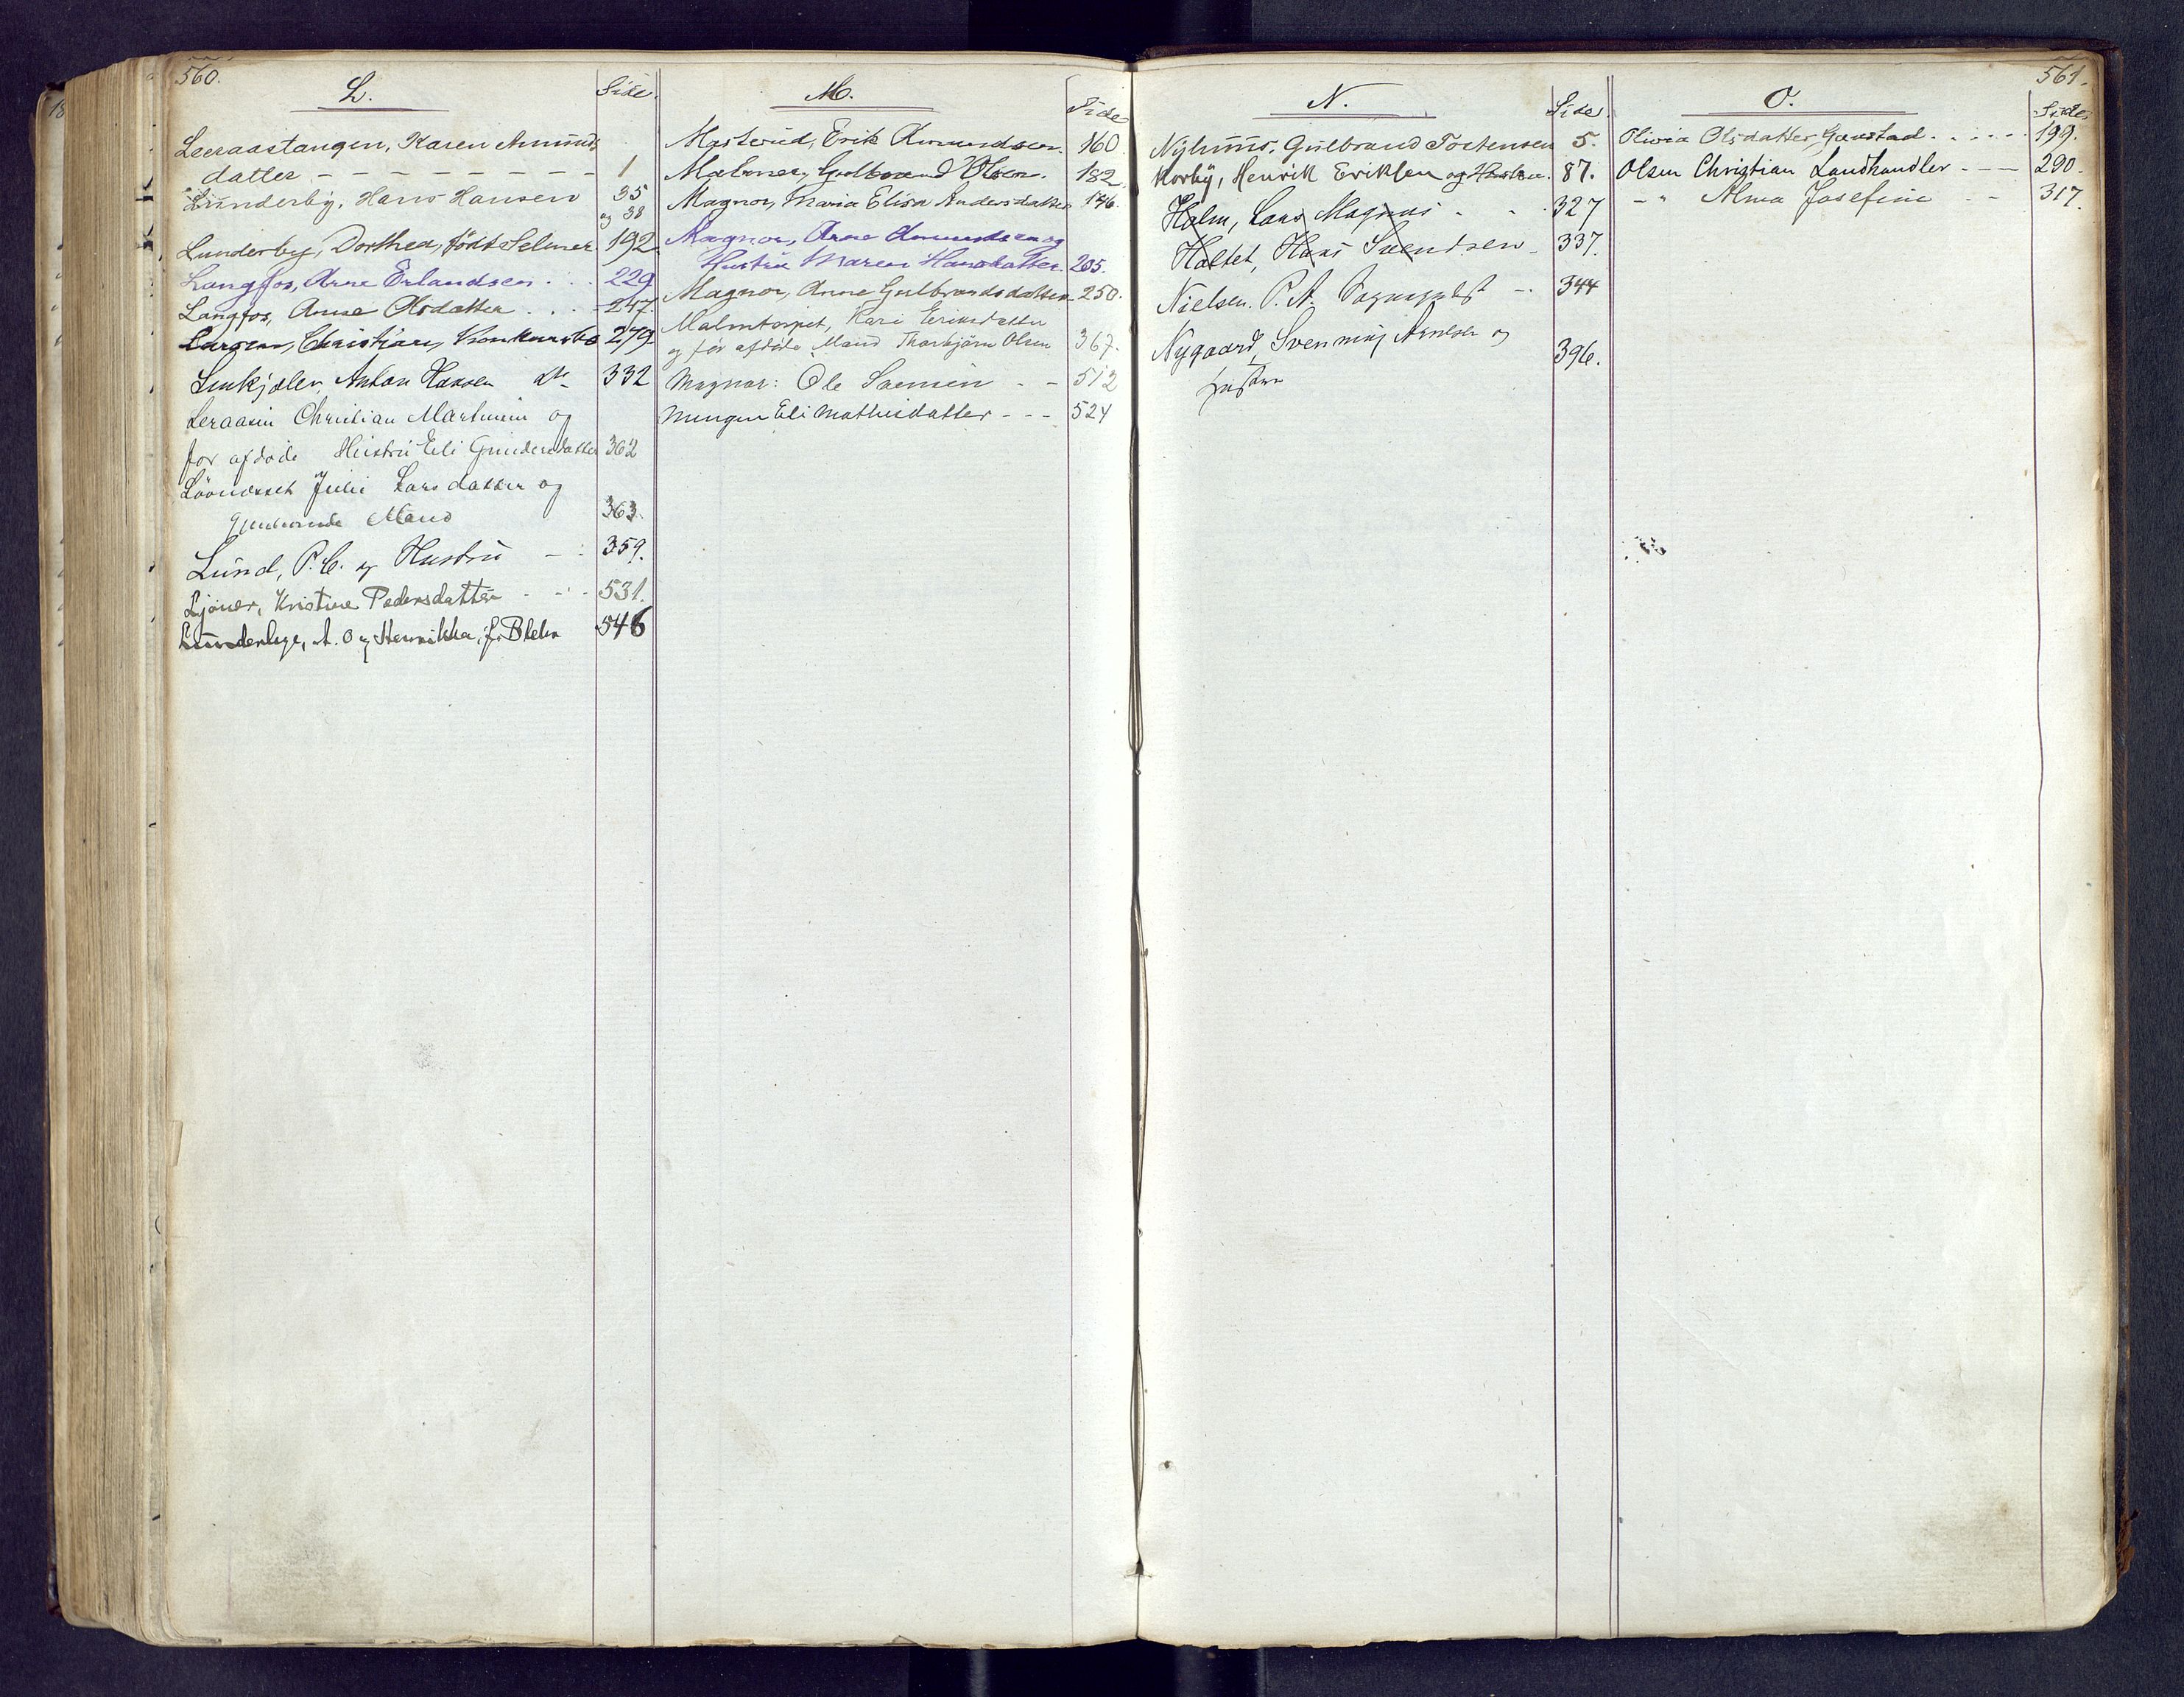 560.
L.
Side.
Leeraastangen, Karen Amunds
datter - - - - - - - - 1
Lunderby, Hans Hansen 35
og 38
Lunderby, Dorthea, født Selmer. 192
Langfos, Arne Erlandsen . . . 229
Langfos, Anne Olsdatter . . . 247.
Larsen, Christian, Konkursbo 279
Anton Hansen 332
Leraasen Christian Martinsen og
før afdøde Hustru Eli Gundersdatter 362
Julie Larsdatter og
gjenlevende Mand 363.
Lund, P. C. og Hustru - - 359.
Ljøner, Kristine Pedersdatter - - - 531.
Lunderbye, A. O og Henrikka, f. 546
M.
Side
Masterud, Erik Amundsen. 160
Malmer, Gulbrand Olsen. 182.
Magnor, Maria Elisa Andersdatter 146.
Magnor, Arne Amundsen og
Hustru Maren Hansdatter. 205.
Magnor, Anne Gulbrandsdatter. 250.
Malmtorpet, Kari Eriksdatter
og før afdøde Mand Thorbjørn Olsen 367.
Magnor: Ole - - 512
Mengen Eli Mathisdatter - - - 524
561.
N.
Side.
Nyhuus, Gulbrand Tostensen 5.
Norby, Henrik Eriksen og Hustru. 87.
Holm, Lars Magnus - - 327
Holtet, Hans Svendsen - 337.
Nielsen. P. A. - 344
Nygaard, Svenning Arnesen og
Hustru 396.
O.
Side
Olivia Olsdatter, Gaustad . . . . . 199.
Olsen Christian Landhandler - - - 290.
- " Alma Josefine - - 317.